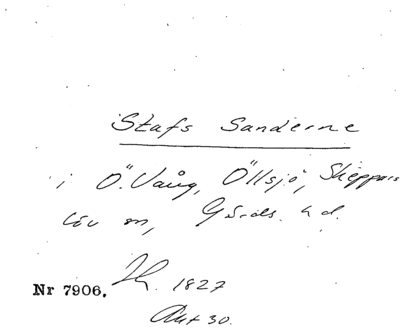 Stafs Sanderne
i Ö. Vång, Öllsjö, Skeppars
löv sn, Gärds hd.
Nr 7906. 1827
Akt 30.